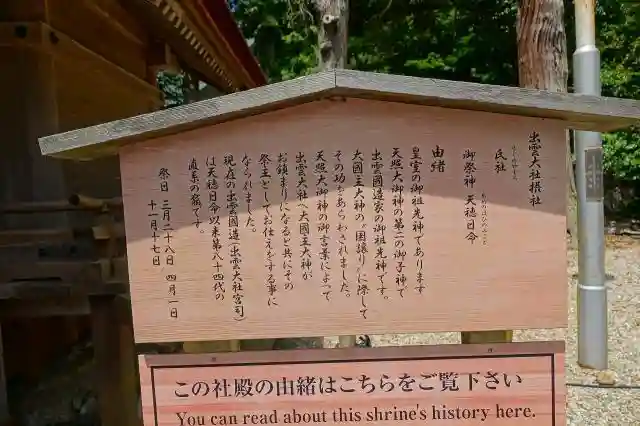 出雲大社摂社
氏社
御祭神 天穂日命
由緒
皇室の御祖先神であります
天照大御神の第二の御子神で
出雲國造家の御祖先神です。
大國主大神の「国譲り」に際して
その功をあらわされました。
天照大御神の御言葉によって
出雲大社へ大國主大神が
お鎮まりになると共にその
祭主としてお仕えをする事に
なりました。
現在の出雲國造(出雲大社宮司)
は天穂日命以来第八十四代の
直系の裔です。
祭日 三月二十八日 四月一日
十一月十七日
この社殿の由緒はこちらをご覧下さい
You can read about this shrine's history here.